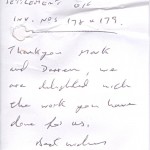 SETTLEMENT OF
INV. NOS 178 & 179.
Thankyou Mark
and Darren, we
are delighted with
the work you have
done for us.
Best wishes